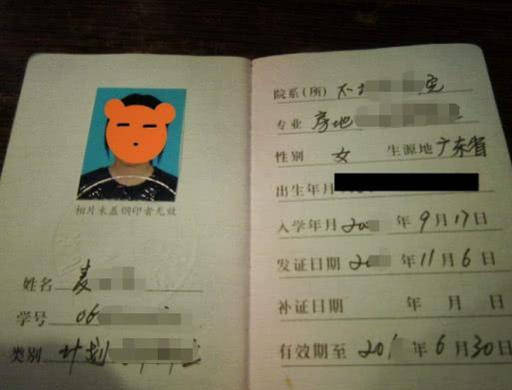 相片未盖钢印者无效
姓名 麦
学号 06
类别 计划
院系(所)
专业 房地
性别 女 生源地 广东省
出生年月
入学年月 20 年 9 月 17 日
发证日期 20 年 11 月 6 日
补证日期 年 月 日
有效期至 201 年 6 月 30 日